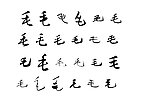 毛毛毛毛毛毛
毛毛毛毛毛毛
毛毛毛毛毛毛
毛毛毛毛毛毛